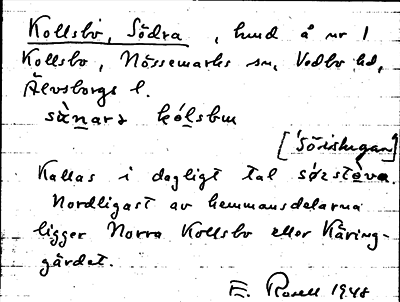 Kollsbo, Södra, hmd å nr 1
Kollsbo, Nössemarks sn, Vedbo hd,
Älvsborgs l.
sùnarz kólsbm
['Söristugan']
Kallas i dagligt tal sørstèva.
Nordligast av hemmansdelarna
ligger Norra Kollsbo eller Käring-
gärdet.
E. Rosell 1948